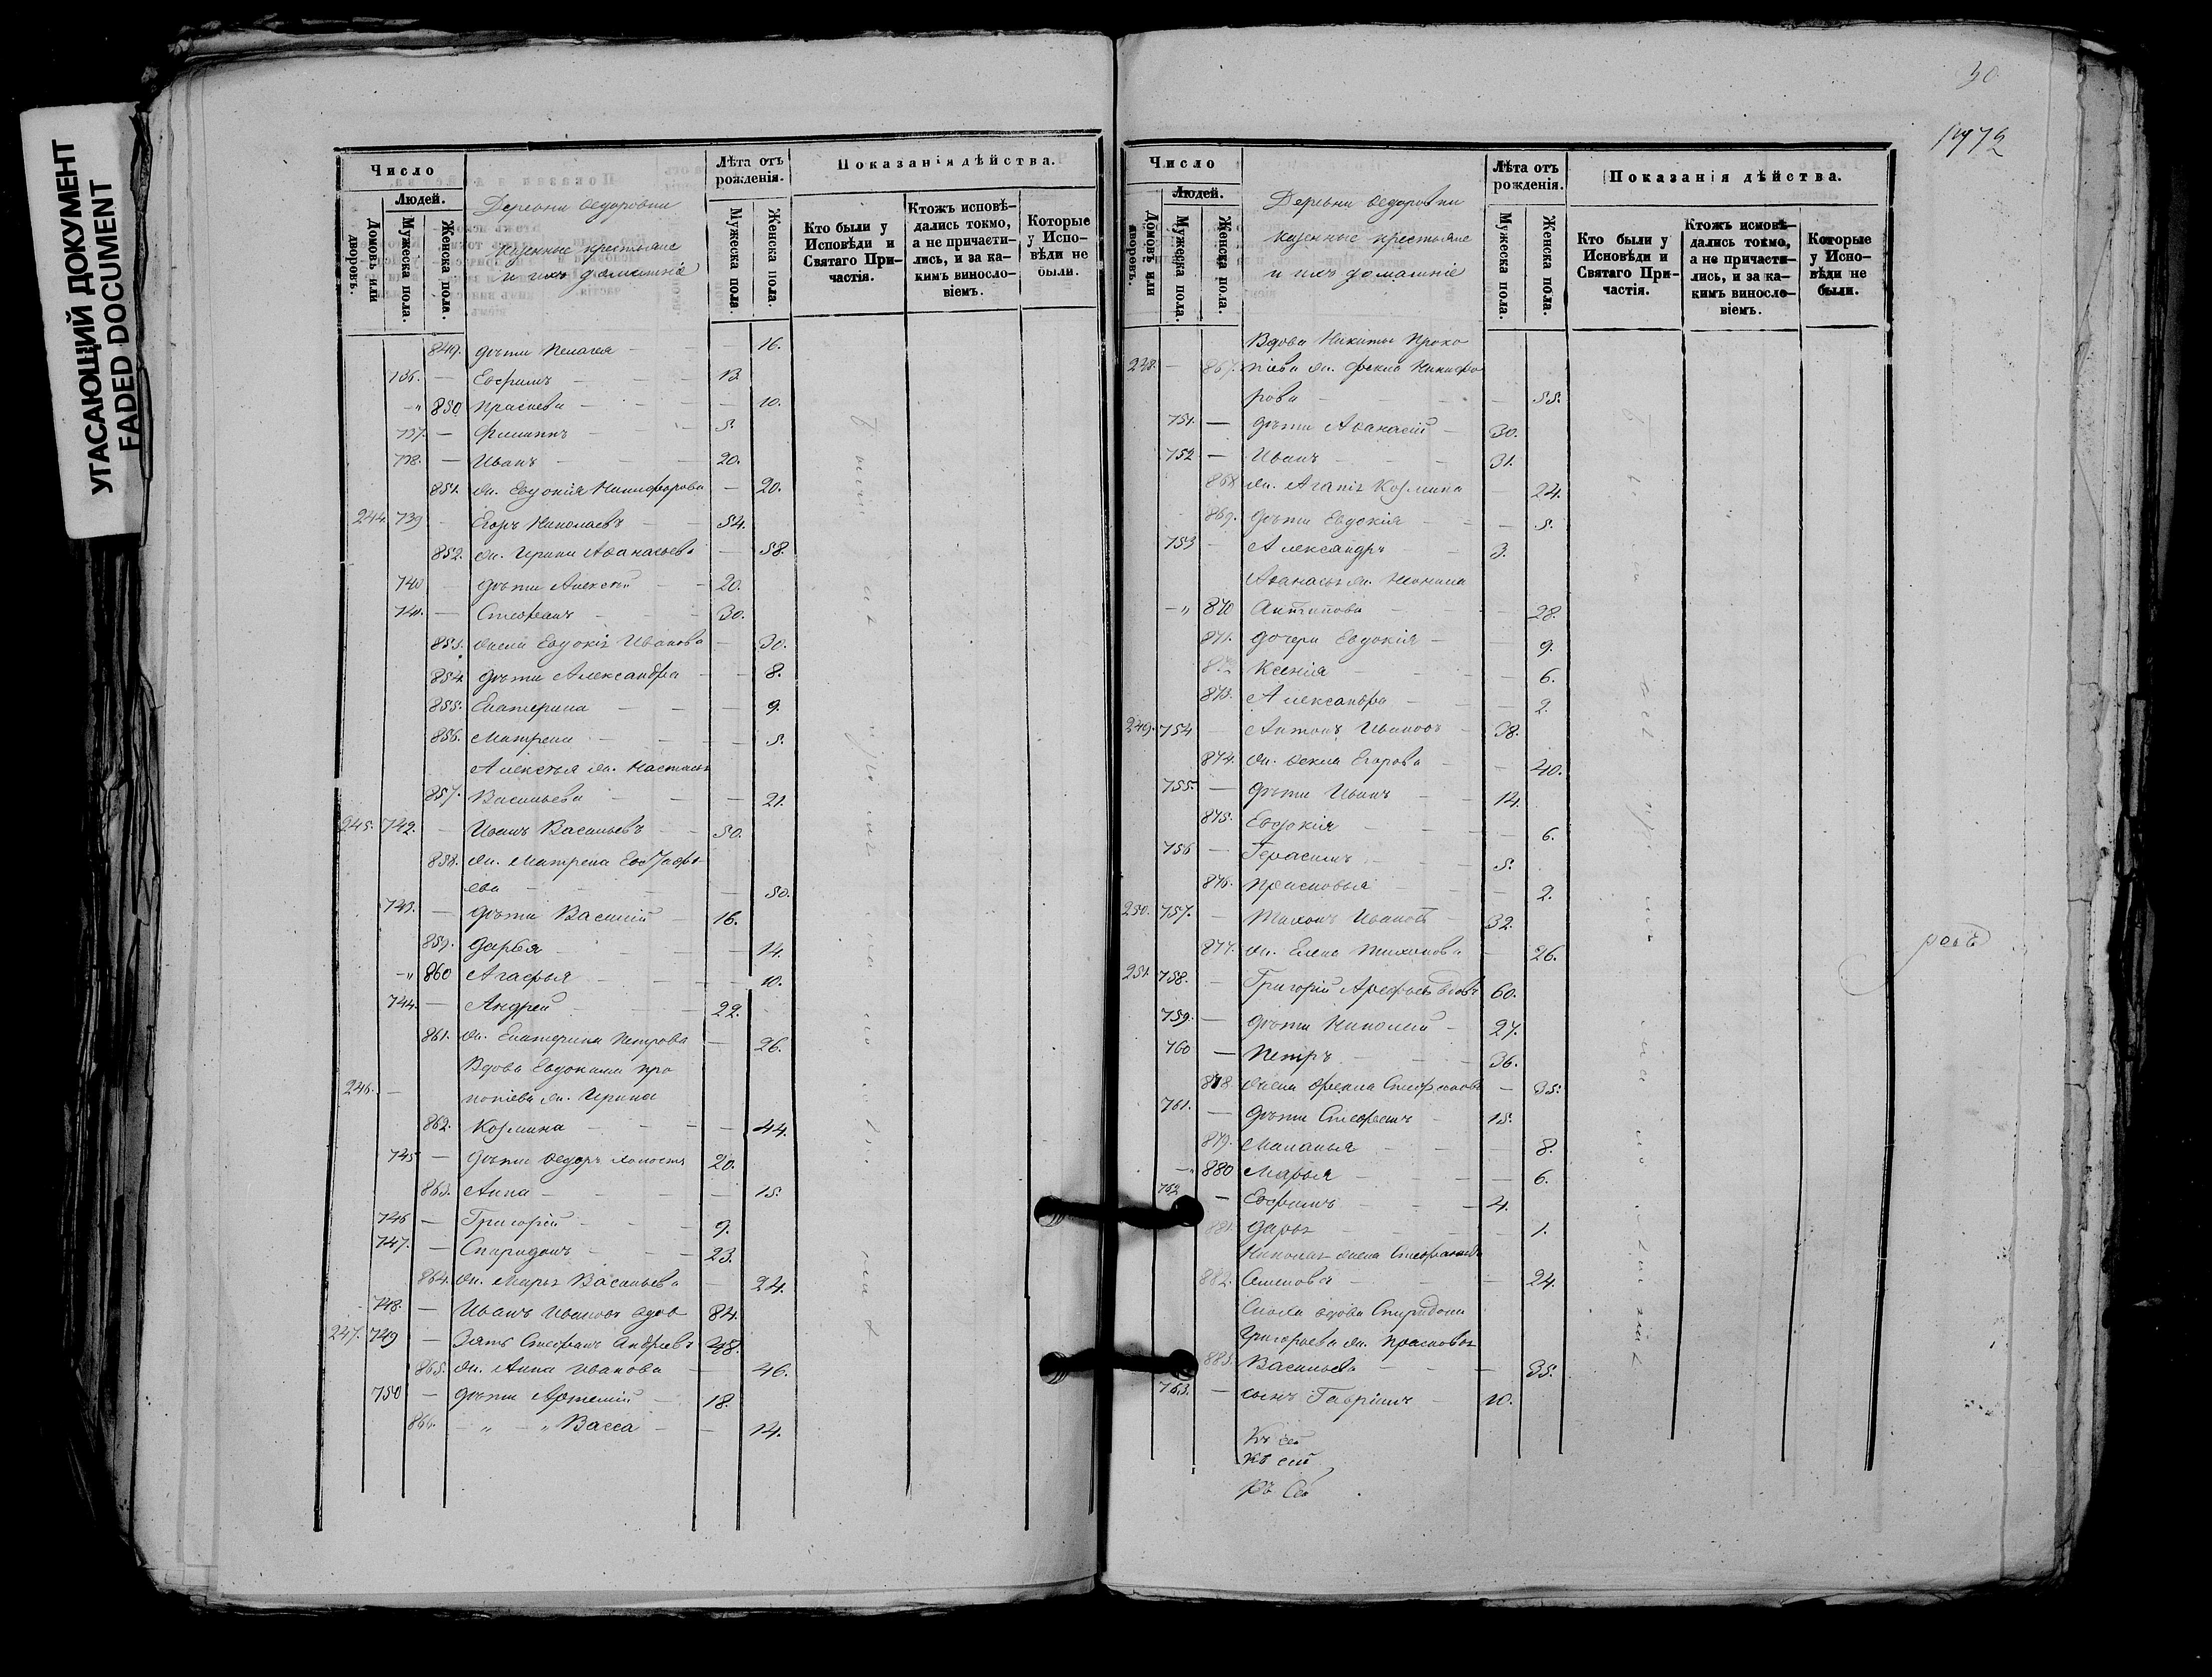 УГАСАЮЩИЙ ДОКУМЕНТ
FADED DOCUMENT
Число
Людей.
Домовъ или дворовъ.
Мужеска пола.
Женска пола.
Деревни Ѳедоровки
казенные крестьяне
и ихъ домашніе
Лѣта отъ рожденія.
Мужеска пола
Женска пола.
Показанія дѣйства.
Кто были у Исповѣди и Святаго Причастія.
Ктожъ исповѣдались токмо, а не причастились, и за какимъ винословіемъ.
Которые у Исповѣди не были.
849. дѣти Пелагея 16.
736. — Евфимъ 13
850 Прасковья 10.
737. — Филиппъ 5.
738. — Иванъ 20.
851. ж. Евдокія Никифорова 20.
244. 739 Егоръ Николаевъ 54.
852. ж. Ирина Аѳанасьева 58.
740 дѣти Алексѣй 20.
741. — Стефанъ 30.
853. жена Евдокія Иванова 30.
854 дѣти Александра 8.
855. Екатерина 9.
856. Матрена 5.
Алексѣя ж. Настасья
857. Васильева 21.
245. 742. Иванъ Васильевъ 50.
858. ж. Матрена Евстафь
ева 50.
743. — дѣти Василій 16.
859. Дарья 14.
860 Агафья 10.
744. — Андрей 22.
861. ж. Екатерина Петрова 26.
Вдова Евдокима Про
246. — копіева ж. Ирина
862. Козмина 44.
745 — дѣти Ѳедоръ холостъ 20.
863. Анна 15.
746 — Григорій 9.
747. — Спиридонъ 23.
864. ж. Марья Васильева 24.
748. — Иванъ Ивановъ вдов 84.
247. 749 — Зять Стефанъ Андреевъ 48.
865. ж. Анна Иванова 46.
750 — дѣти Артемій 18.
866. — „ — „ Васса 14.
30
1472
Число
Людей.
Домовъ или дворовъ.
Мужеска пола.
Женска пола.
Деревни Ѳедоровки
казенные крестьяне
и ихъ домашніе
Лѣта отъ рожденія.
Мужеска пола.
Женска пола.
Показанія дѣйства.
Кто были у Исповѣди и Святаго Причастія.
Ктожъ исповѣдались токмо, а не причастились, и за какимъ винословіемъ.
Которые у Исповѣди не были.
Вдова Никиты Проко
248. — 867. піева ж. Фекла Никифо
рова 55.
751. — дѣти Аѳанасій 30.
752 — Иванъ 31.
868 ж. Агапія Козмина 24.
869. дѣти Евдокія 5.
753 Александръ 3.
Аѳанасья ж.
870 Антипова 28.
871. дочери Евдокія 9.
872 Ксенія 6.
873. Александра 2.
249. 754 Антонъ Ивановъ 38.
874. ж. Ѳекла Егорова 40.
755. — дѣти Иванъ 14.
875. Евдокія 6.
756 — Герасимъ 5.
876. Прасковья 2.
250. 757. Тихонъ Ивановъ 32.
877. ж. Елена Тихонова 26.
251 758. Григорій Арефьевъ вдовъ 60.
759. — дѣти Николай 27.
760 — Петръ 36.
878. жена Фекла Стефанова 35.
761. — дѣти Стефанъ 15.
879. Маланья 8.
880 Марья 6.
762 — Евфимъ 4.
881. Дарья 1.
Николая жена Стефанида
882. Семенова 24.
Сноха вдова Спиридона
Григорьева ж. Прасковья
883. Васильева 35.
763. — сынъ Гавріилъ 10.